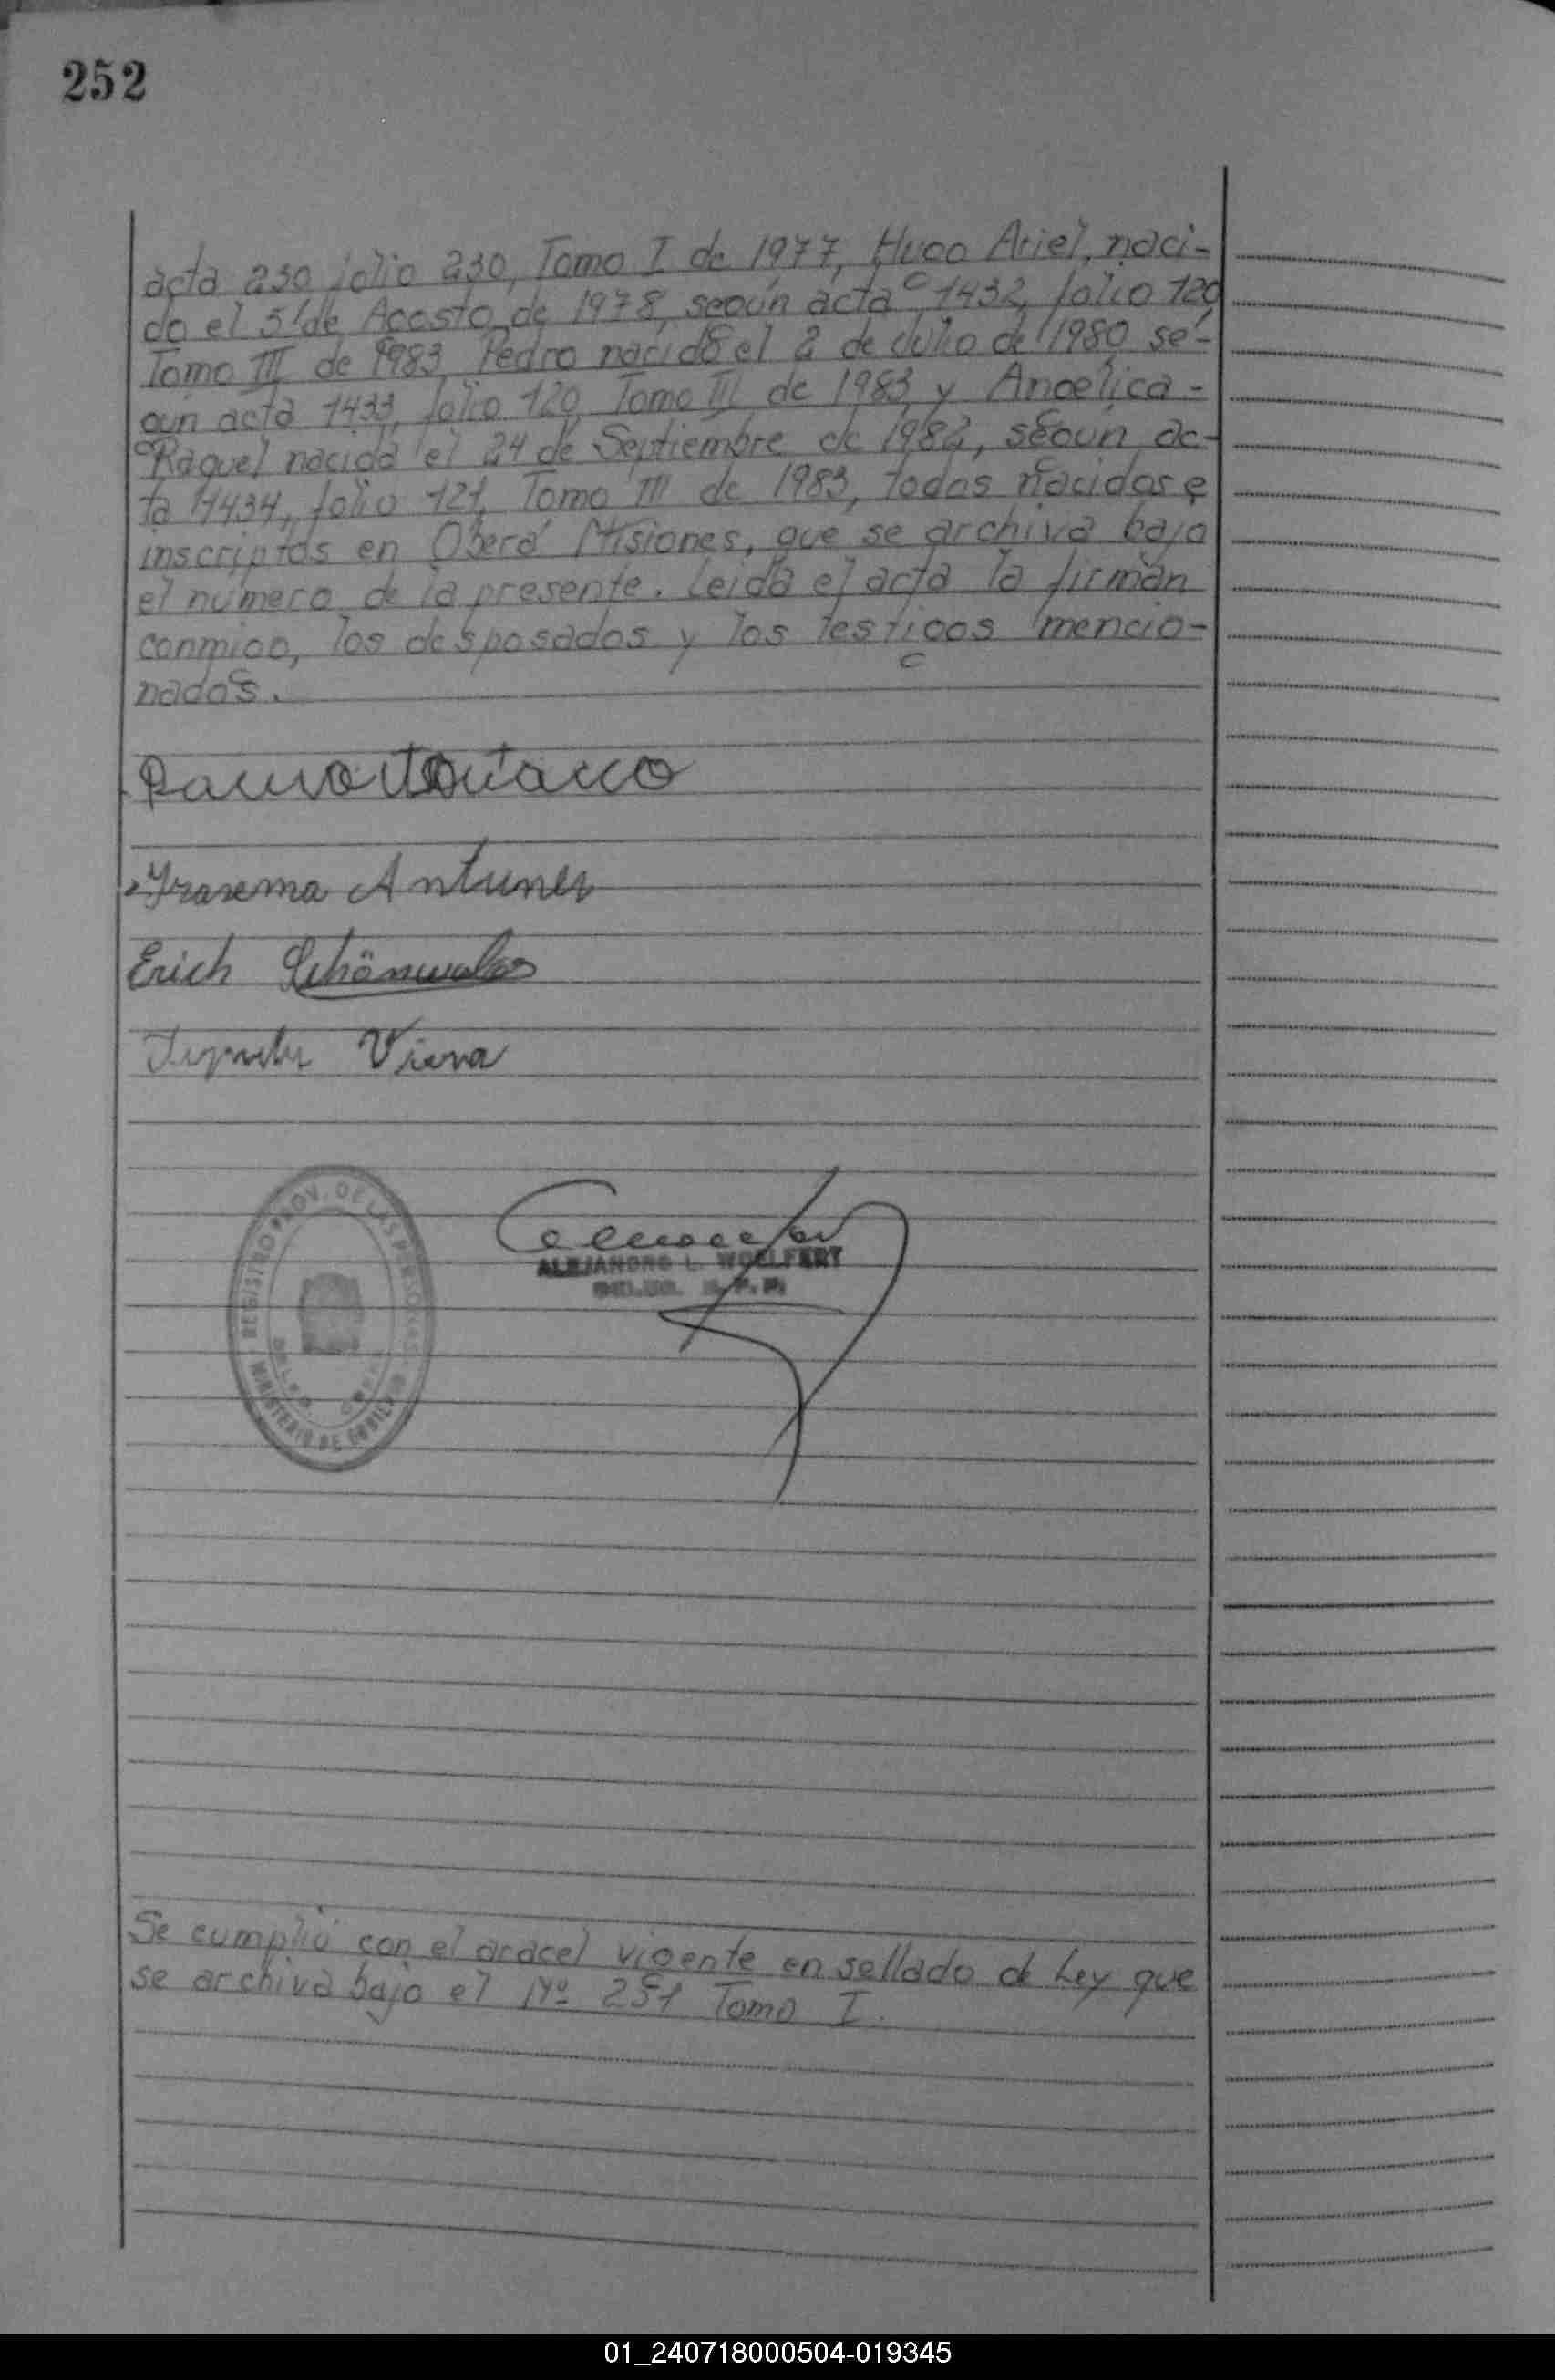 252
acta 230 folio 230, Tomo I de 1977, Hugo Ariel, naci-
do el 5 de Agosto de 1978, según acta 1432, folio 120,
Tomo III de 1983, Pedro nacido el 2 de Julio de 1980 se-
gún acta 1433, folio 120, Tomo III de 1983, y Angelica-
Raquel nacida el 24 de Septiembre de 1982, según ac-
ta 1434, folio 121, Tomo III de 1983, todos nacidos e
inscriptos en Oberá Misiones, que se archiva bajo
el número de la presente. Leida el acta la firman
conmigo, los desposados y los testigos mencio-
nados.
Antunes
Erich
Viera
REGISTRO PROV. DE LAS PERSONAS
MINISTERIO DE GOBIERNO
ALEJANDRO L. WOELFERT
Se cumplió con el aracel vigente en sellado de Ley que
se archiva bajo el Nº 251 Tomo I.
01_240718000504-019345